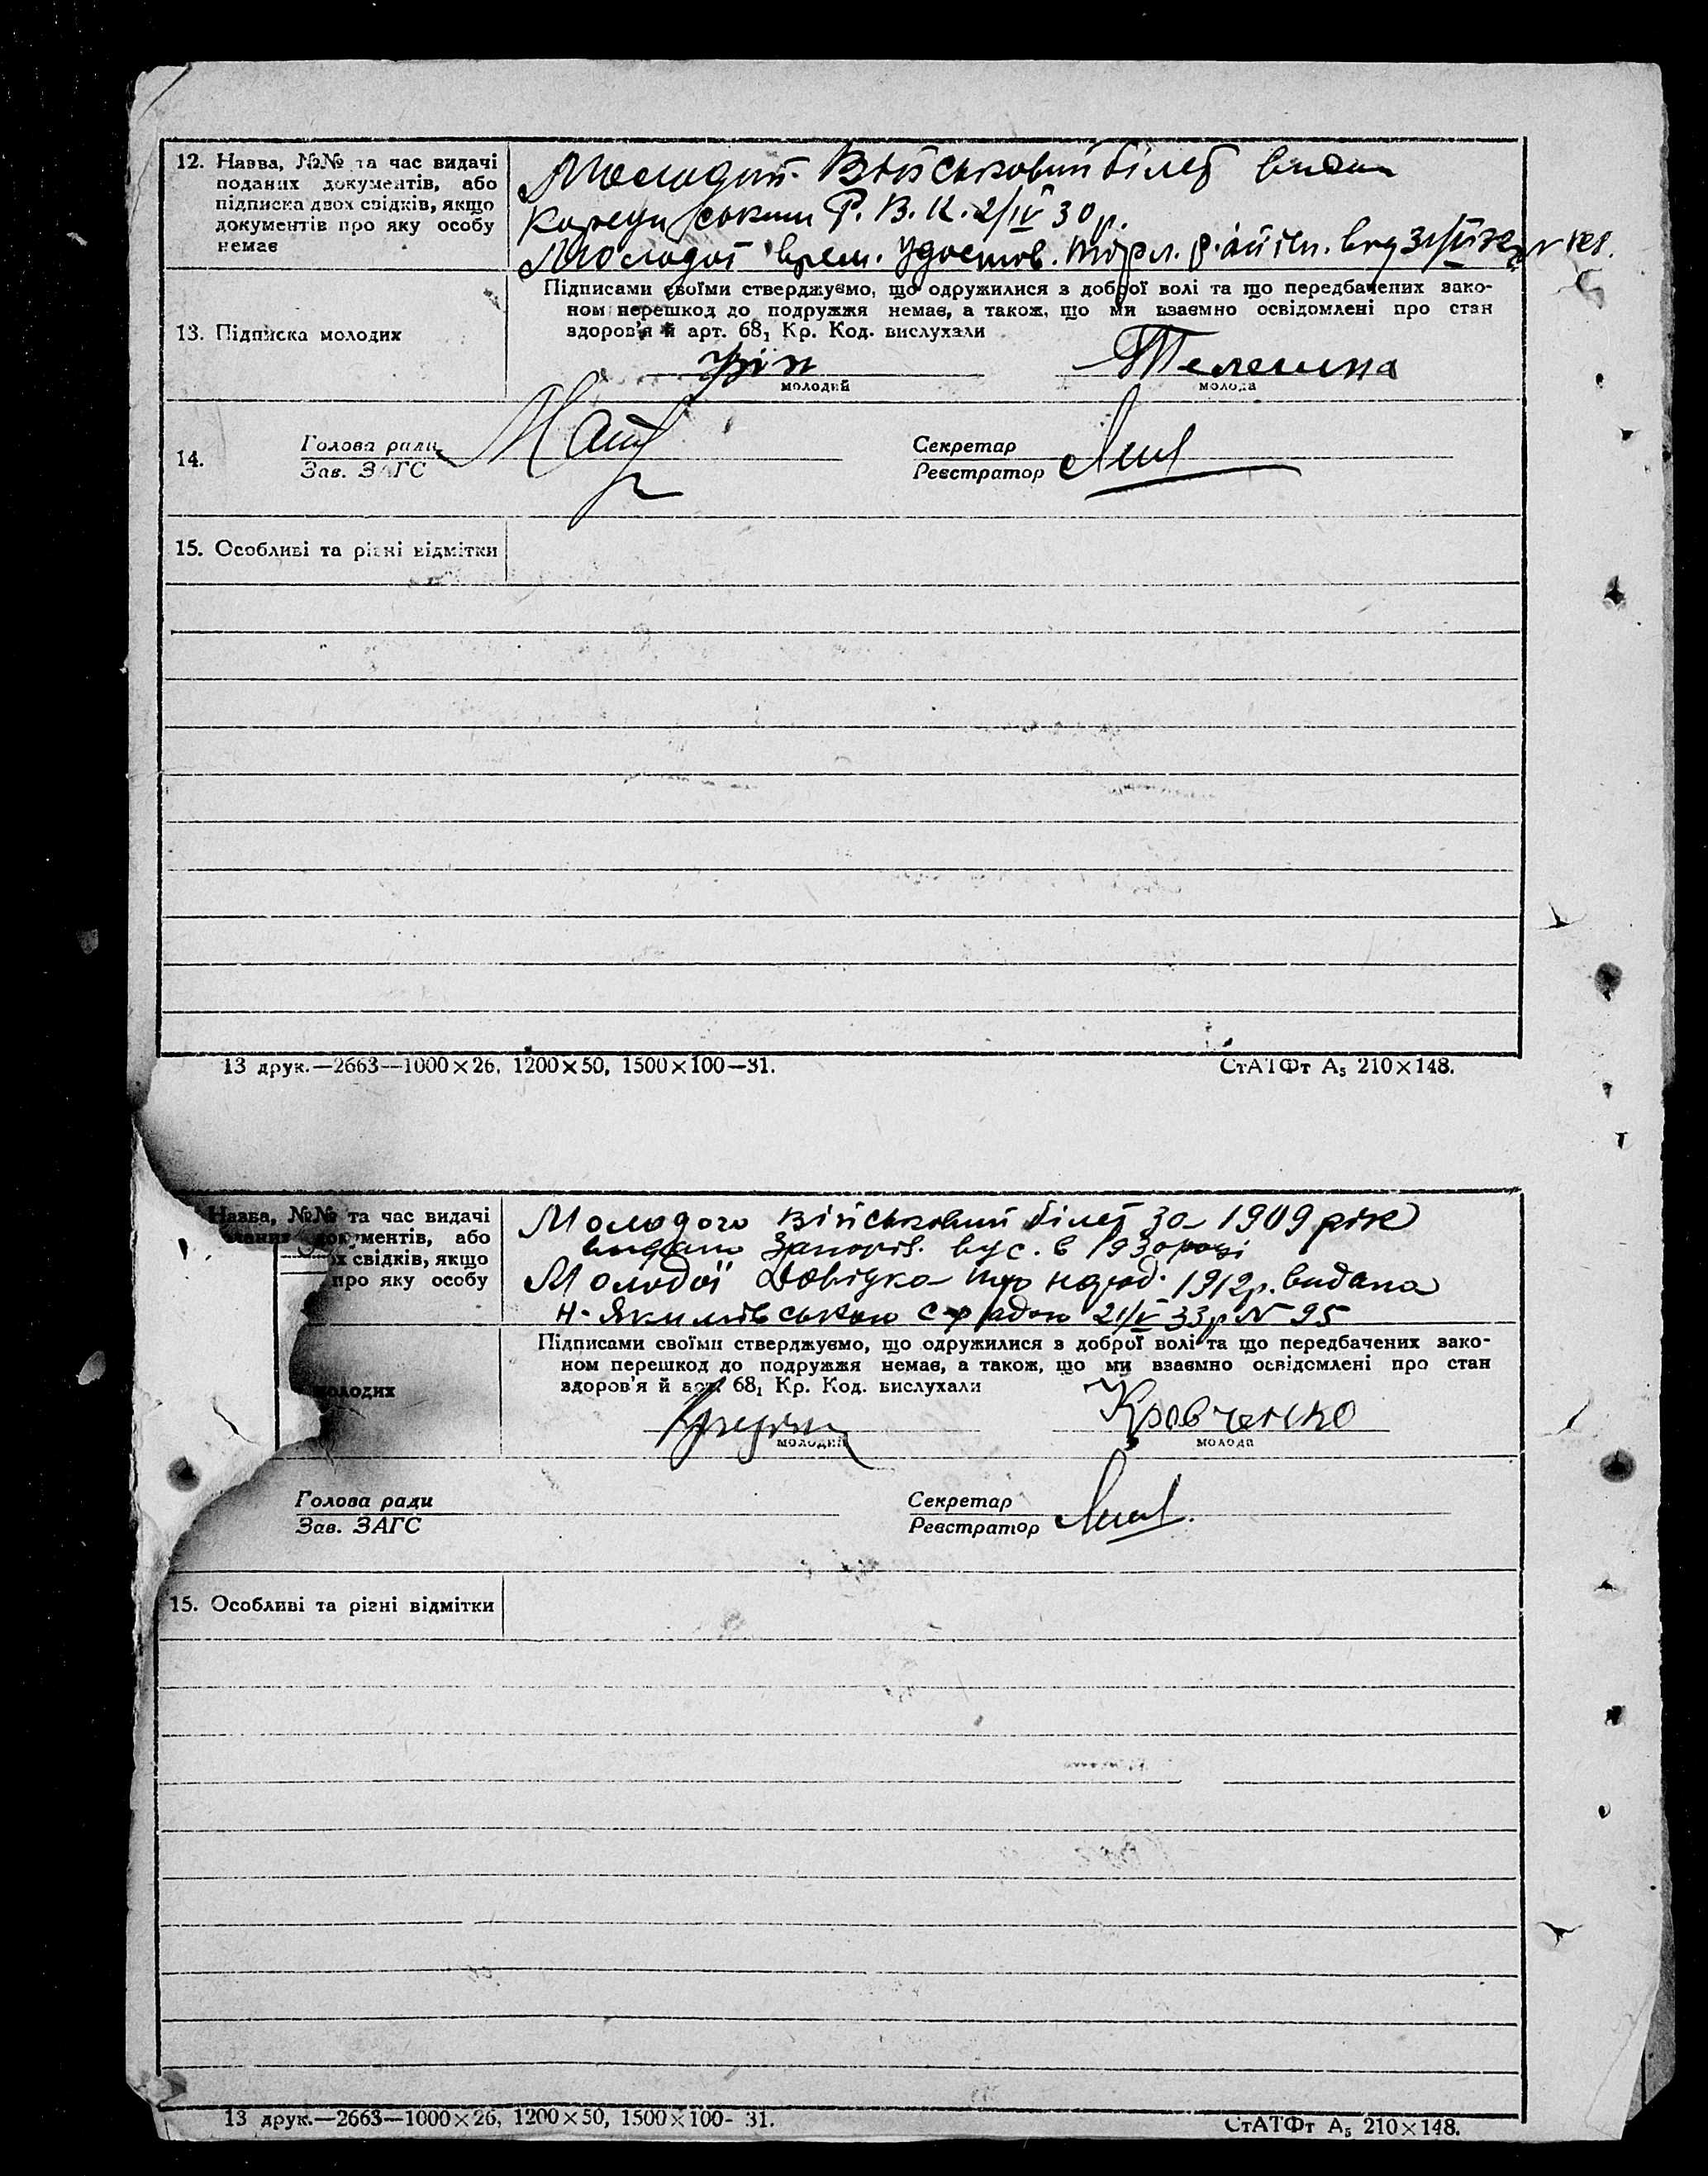 12. Назва, №№ та час видачі
поданих документів, або
підписка двох свідків, якщо
документів про яку особу
немає
Молодий Військовий білет видан
Р. В. К. 2/IV 30 р.
Молодої врем. Удостов.
13. Підписка молодих
Підписами своїми стверджуємо, що одружилися з доброї волі та що передбачених зако-
ном перешкод до подружжя немає, а також, що ми взаємно освідомлені про стан
здоров'я й арт. 68, Кр. Код. вислухали
молодий
Телешна
молода
14.
Голова ради
Зав. ЗАГС
Секретар
Реєстратор
15. Особливі та різні відмітки
13 друк.—2663—1000×26, 1200×50, 1500×100—31.
СтАТФт А₅ 210×148.
Назва, №№ та час видачі
документів, або
свідків, якщо
про яку особу
Молодого Військовий білет за 1909 рік
видано Запоріз. в 1930 році
Молодої Довідка про народ. 1912 р. видана
Н-Якимівською с-радою 21/V 33 р N 95
молодих
Підписами своїми стверджуємо, що одружилися з доброї волі та що передбачених зако-
ном перешкод до подружжя немає, а також, що ми взаємно освідомлені про стан
здоров'я й арт. 68, Кр. Код. вислухали
молодий
Кровченко
молода
Голова ради
Зав. ЗАГС
Секретар
Реєстратор
15. Особливі та різні відмітки
13 друк.—2663—1000×26, 1200×50, 1500×100- 31.
СтАТФт А₅ 210×148.